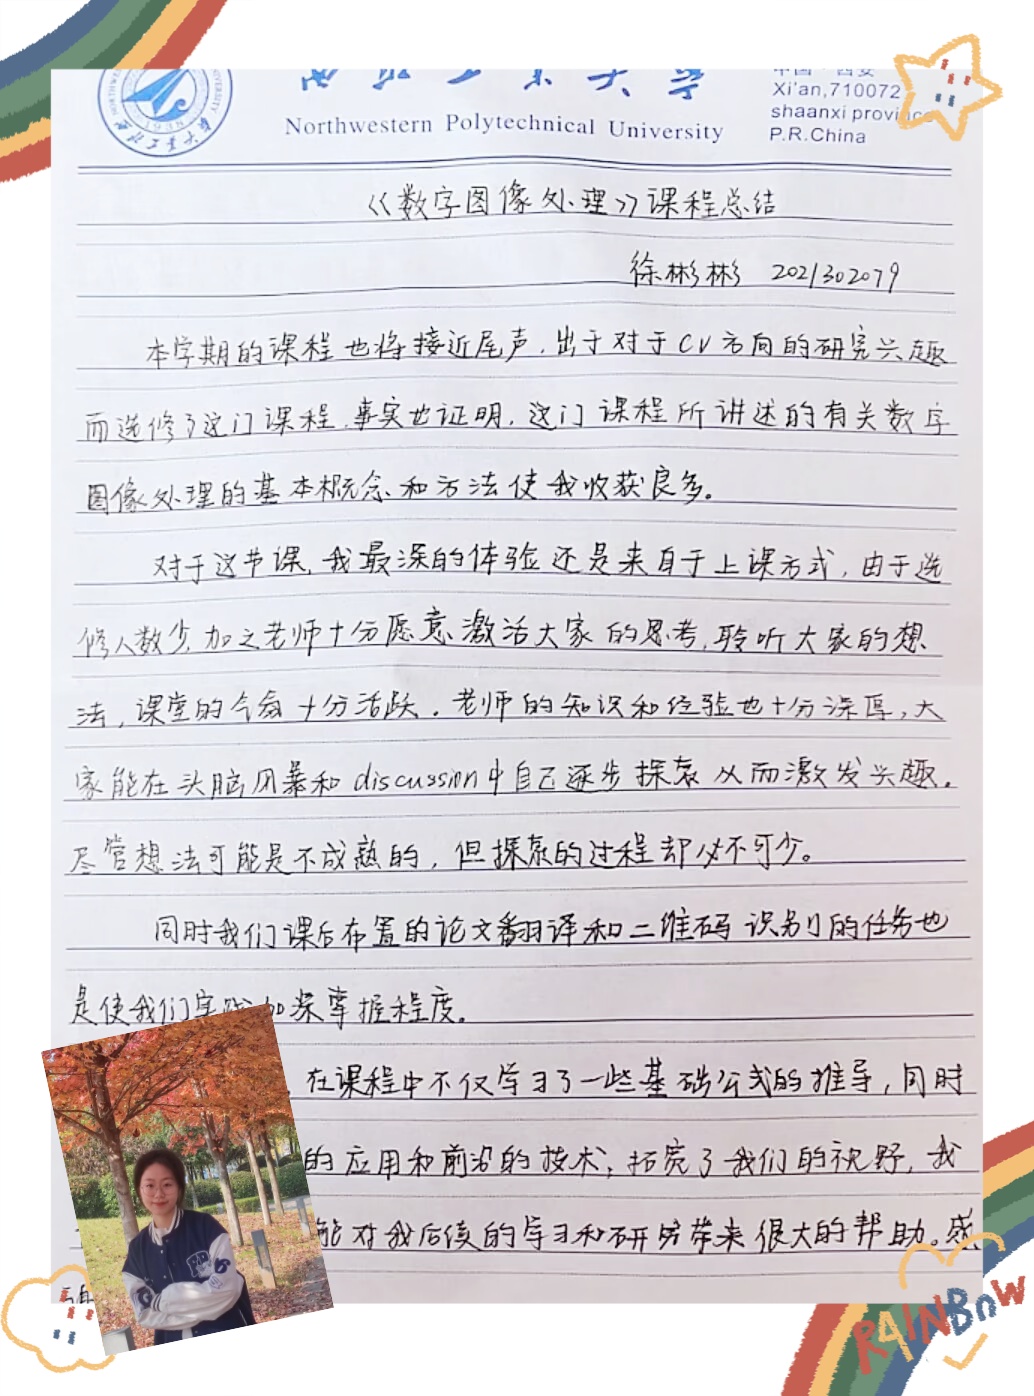 西北工业大学
Northwestern Polytechnical University
中国·西安
Xi'an,710072
shaanxi province
P.R.China
1938
《数字图像处理》课程总结
徐彬彬 2021302079
本学期的课程也将接近尾声,出于对于CV方向的研究兴趣
而选修了这门课程,事实也证明,这门课程所讲述的有关数字
图像处理的基本概念和方法使我收获良多。
对于这节课,我最深的体验还是来自于上课方式,由于选
修人数少,加之老师十分愿意激活大家的思考,聆听大家的想
法,课堂的气氛十分活跃。老师的知识和经验也十分深厚,大
家能在头脑风暴和discussion中自己逐步探索从而激发兴趣。
尽管想法可能是不成熟的,但探索的过程却必不可少。
同时我们课后布置的论文翻译和二维码识别的任务也
是使我们实践加深掌握程度。
在课程中不仅学习了一些基础公式的推导,同时
的应用和前沿的技术,拓宽了我们的视野,我
能对我后续的学习和研究带来很大的帮助。感
RAINBOW